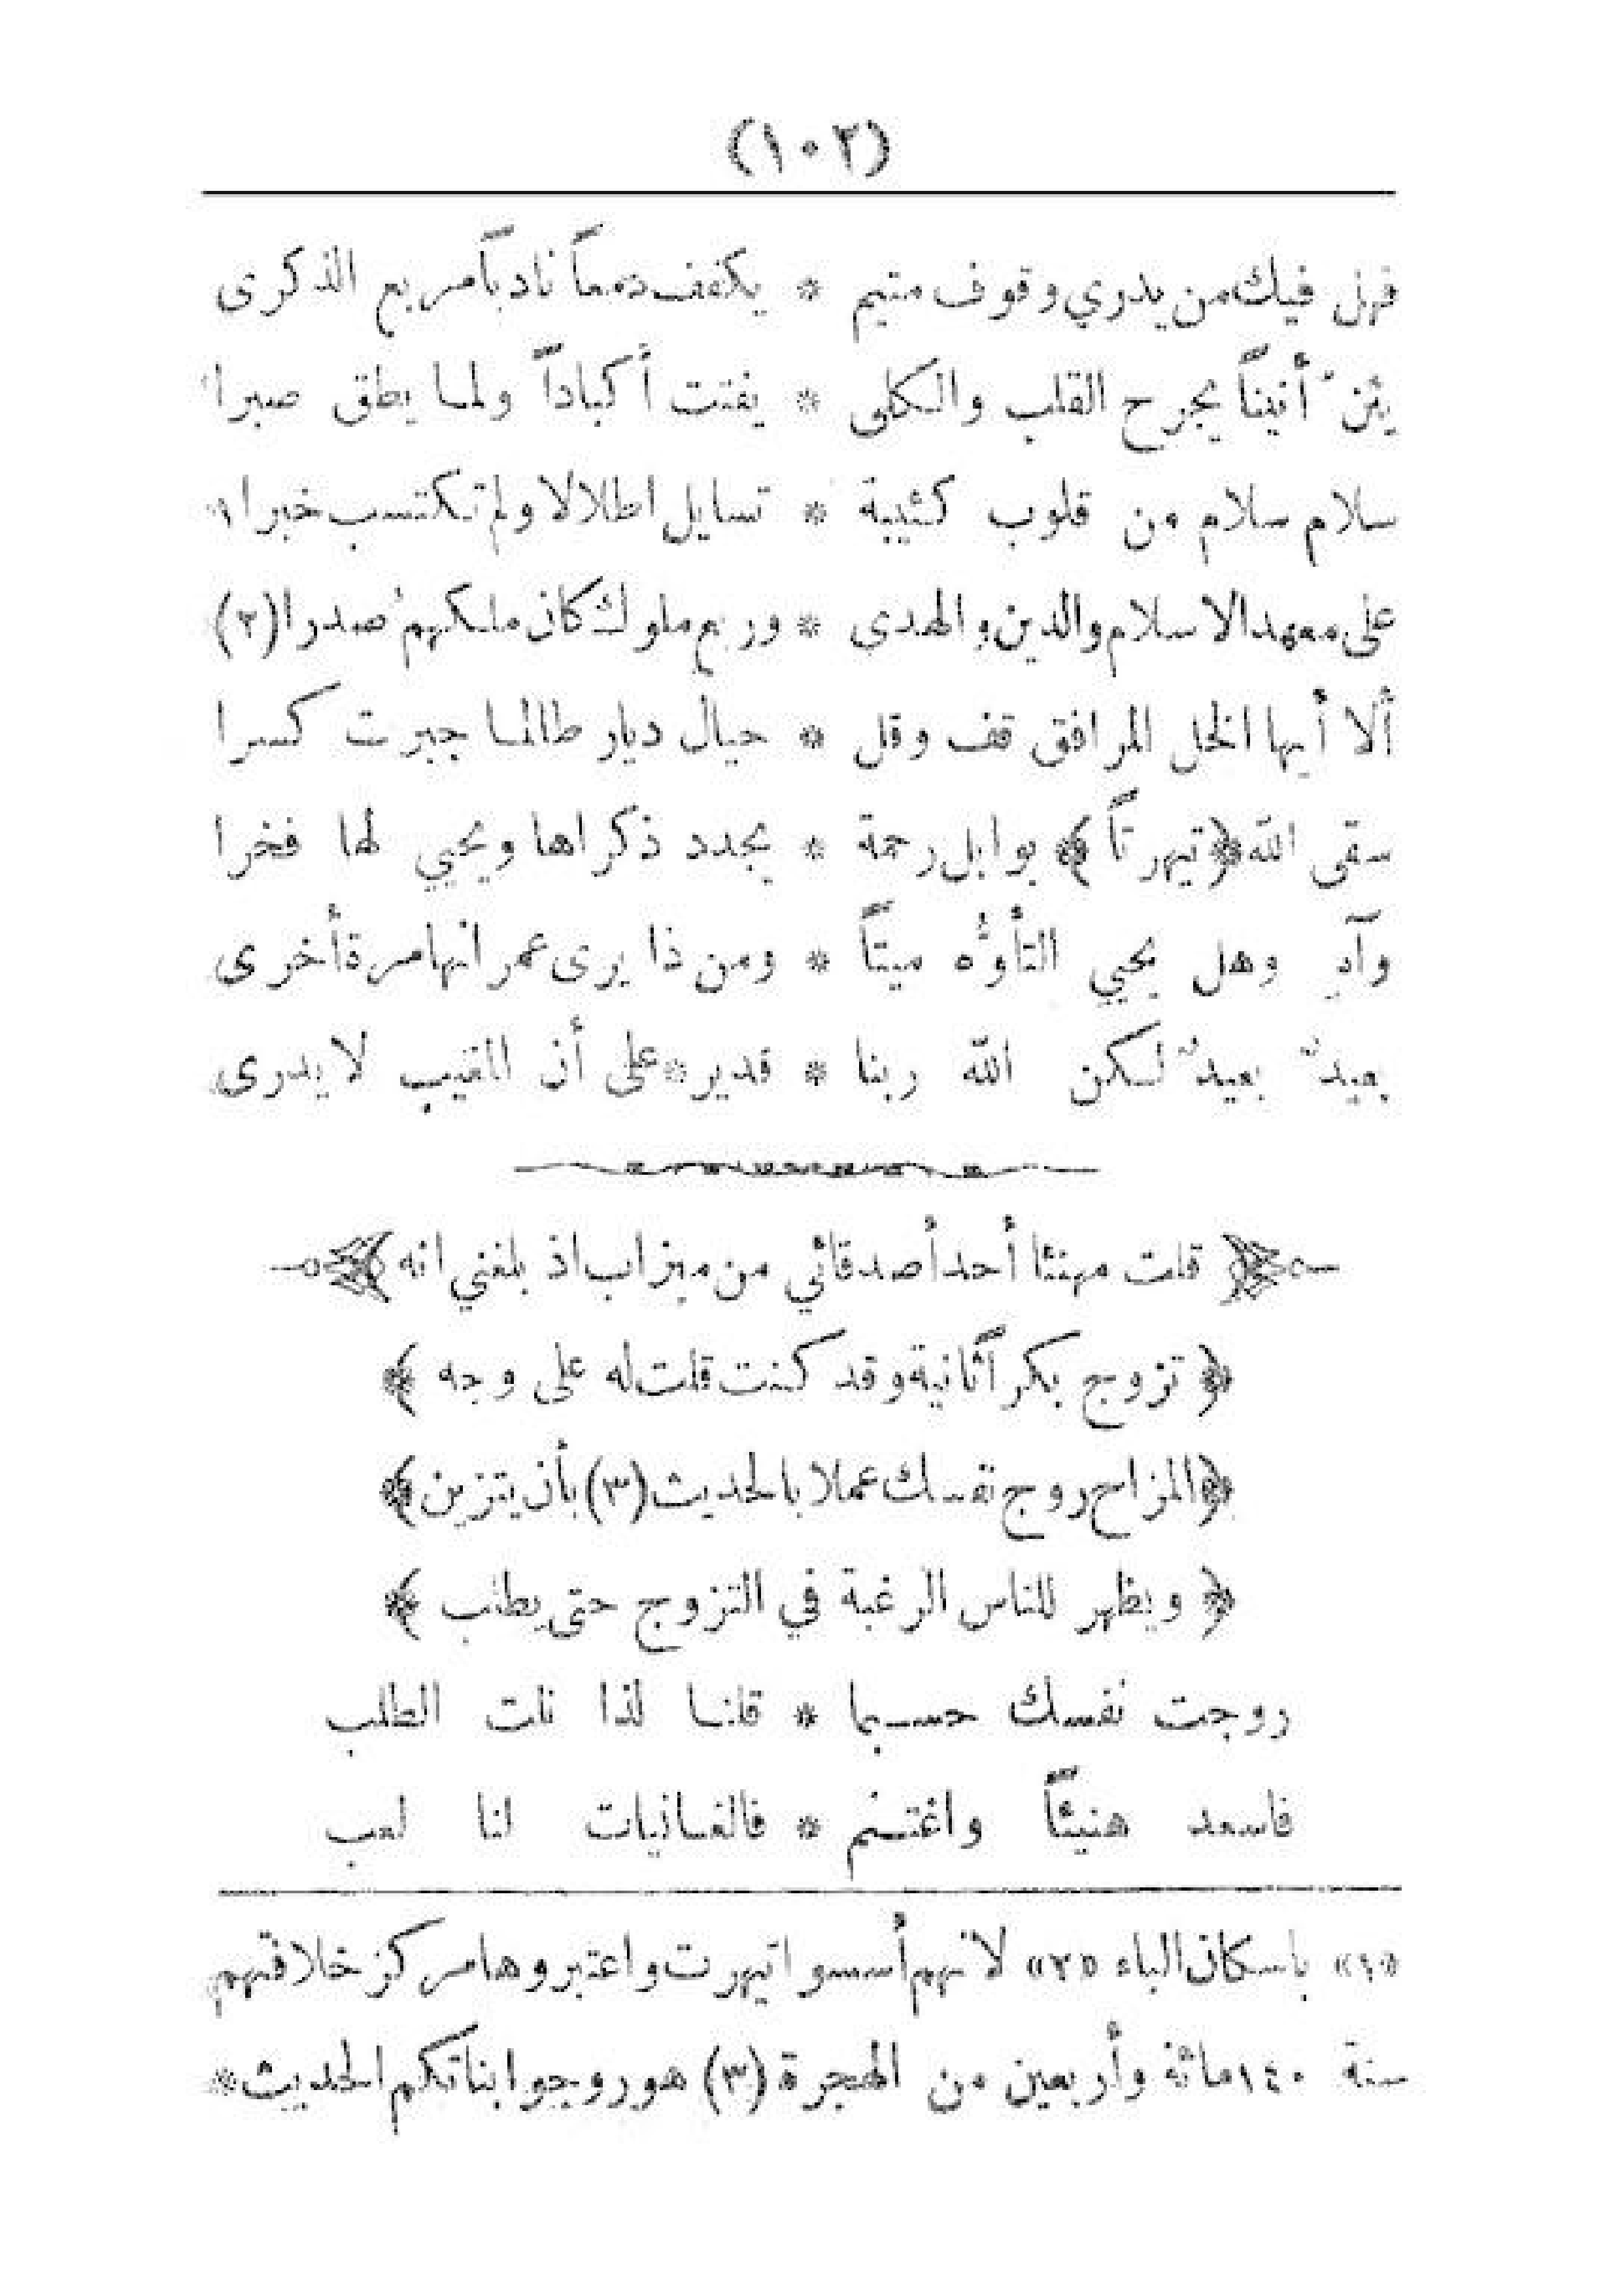 (١٠٢)
فهل فيك من يدري وقوف متيم * يكفف دمعاً نادباً مربع الذكرى
يئنّ أنيناً يجرح القلب والكلى * يفتت أكباداً ولما يطق صبرا
سلام سلام من قلوب كئيبة * تسايل اطلالا ولم تكتسب خبرا ١
على معهد الاسلام والدين والهدى * وربع ملوك كان ملكهمُ صدرا (٢)
ألا أيها الخل المرافق قف وقل * حيال ديار طالما جبرت كسرا
سقى الله ﴿تيهرتاً﴾ بوابل رحمة * يجدد ذكراها ويحيي لها فخرا
وآهِ وهل يحيي التأوُّه ميتاً * ومن ذا يرى عمرانها مرة أخرى
بعيدٌ بعيدٌ لكن الله ربنا * قدير * على أن الغيب لا يدرى
﴿ قلت مهنئا أحد أصدقائي من ميزاب اذ بلغني انه ﴾
﴿ تزوج بكراً ثانية وقد كنت قلت له على وجه ﴾
﴿المزاح روج نفسك عملا بالحديث (٣) بأن يتزين﴾
﴿ ويظهر للناس الرغبة في التزوج حتى يطلب ﴾
روجت نفسك حسبما * قلنا لذا نلت الطلب
فاسعد هنيئاً واغتنم * فالغانيات لنا لعب
«١» باسكان الباء «٢» لانهم أسسوا تيهرت واعتبروها مركز خلافتهم
سنة ١٤٠ مائة وأربعين من الهجرة (٣) هو روجوا بناتكم الحديث *